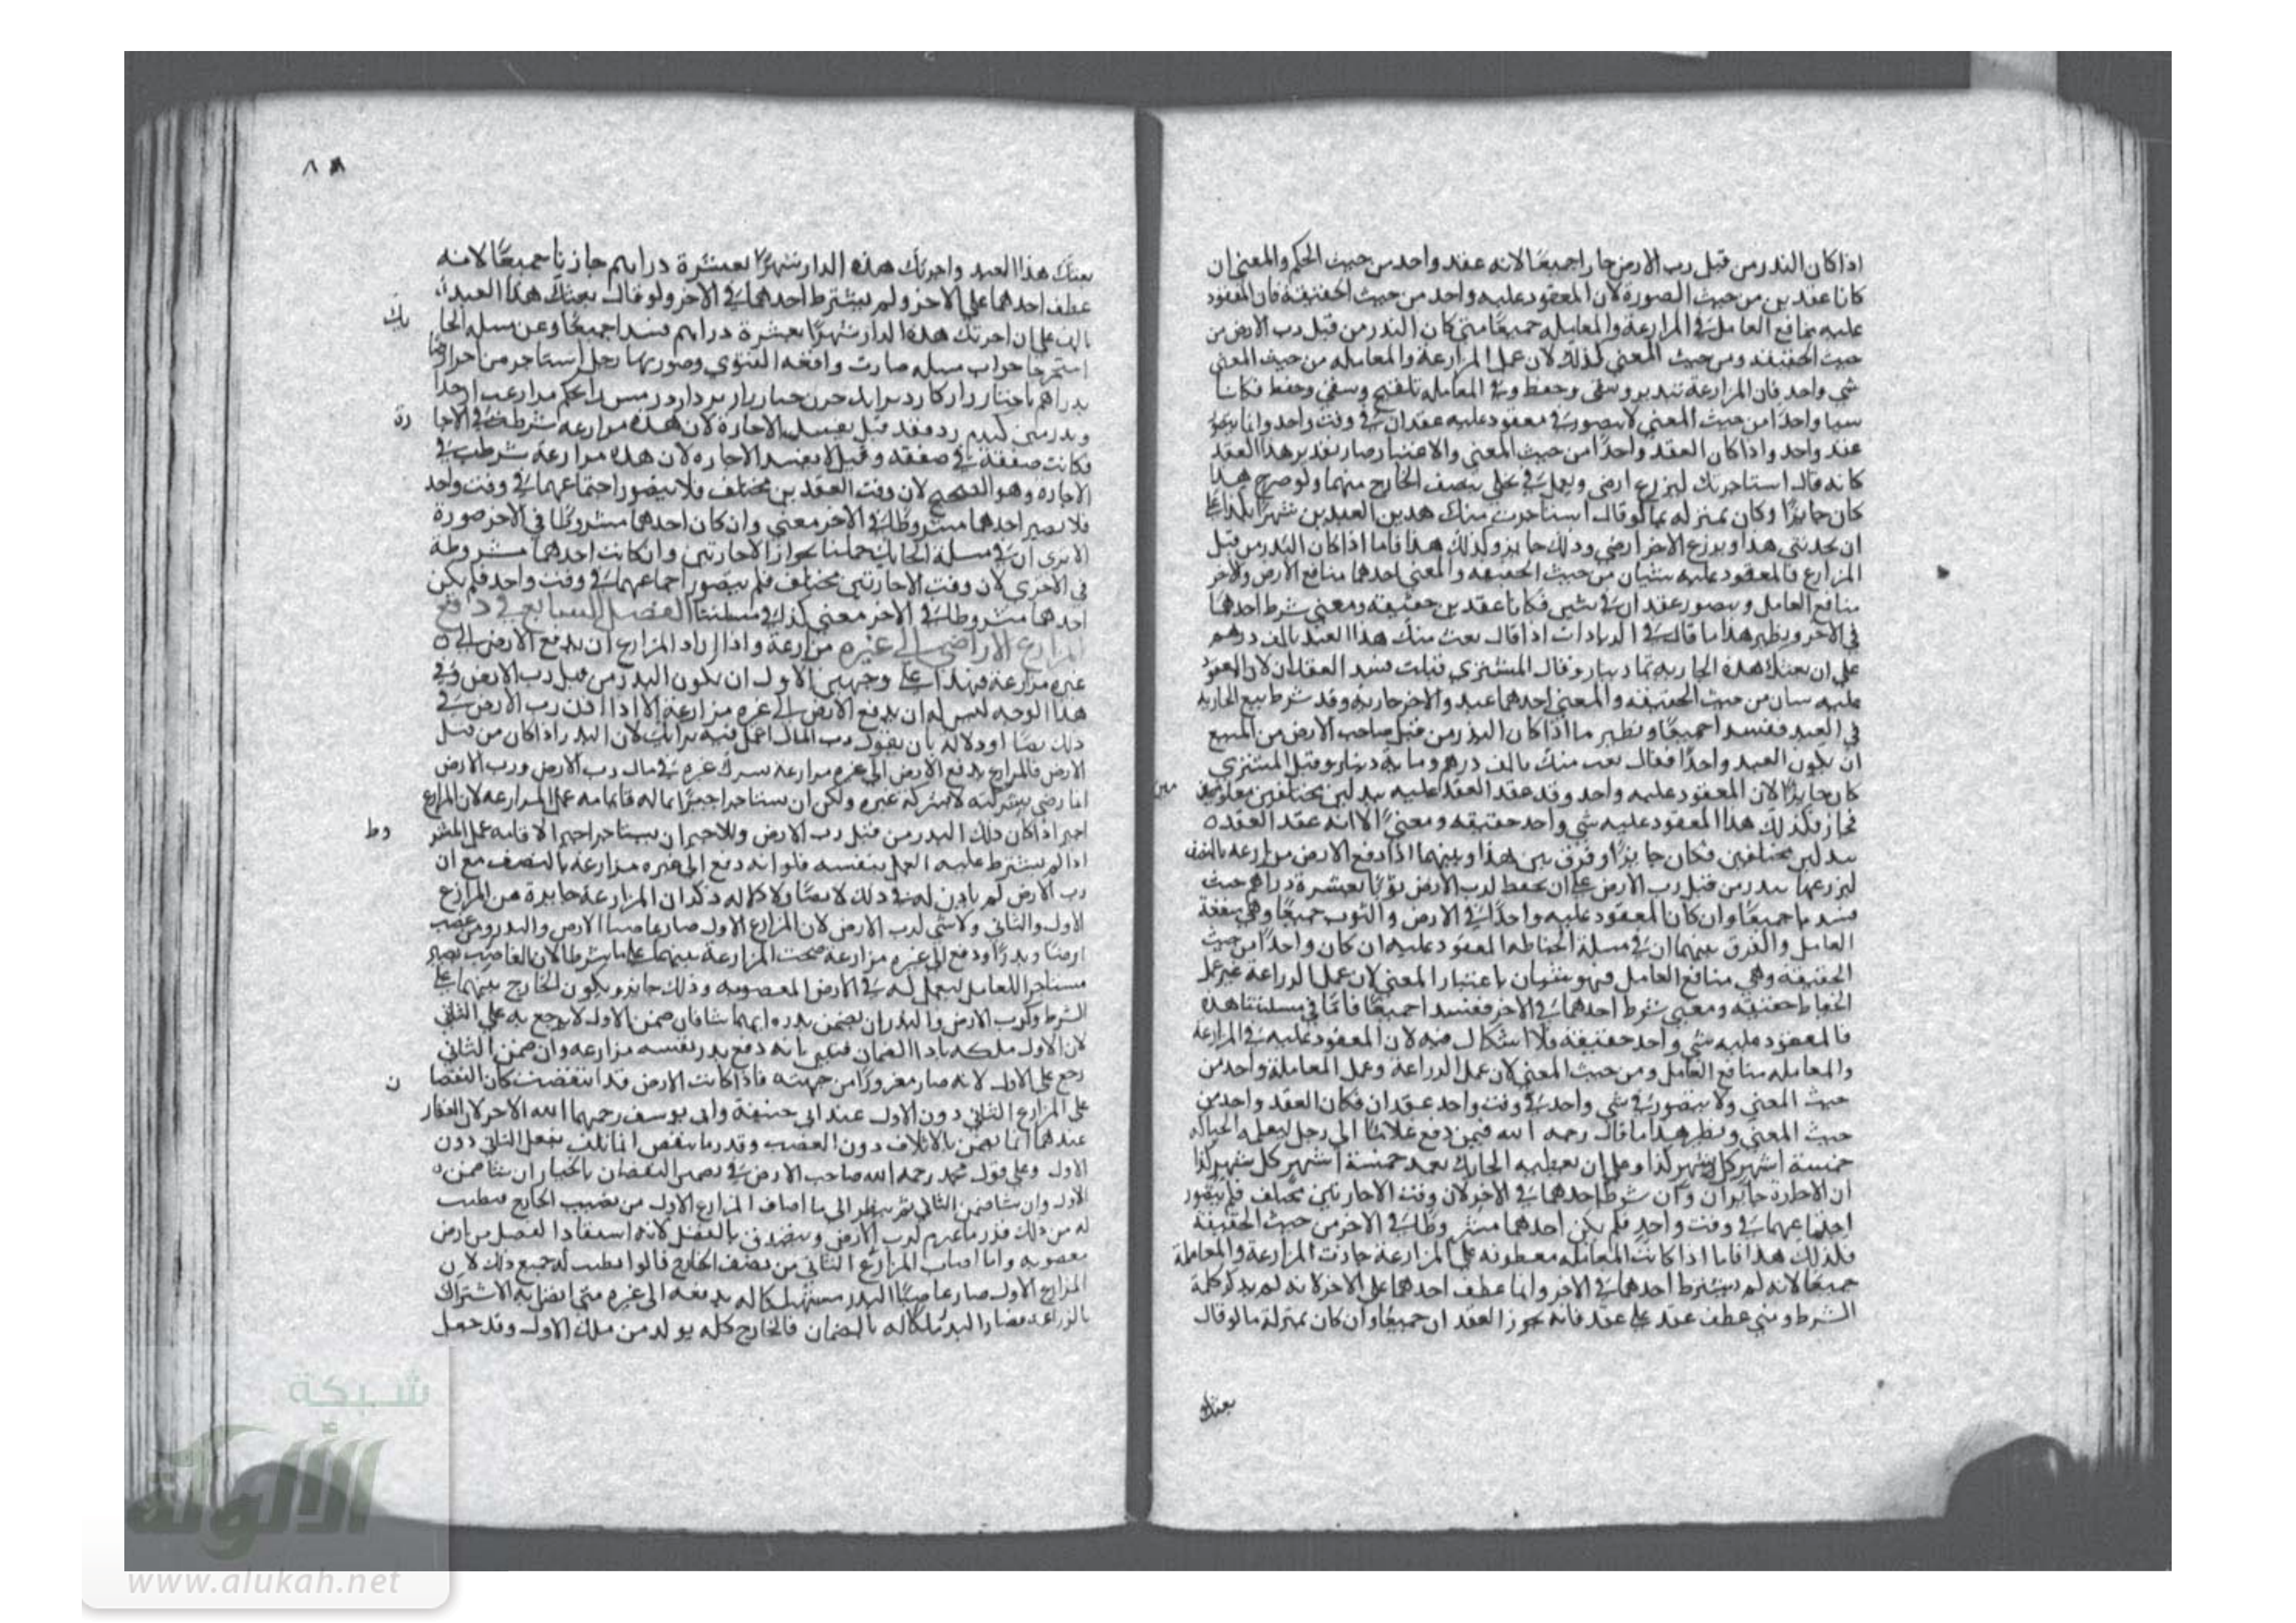 اذا كان البذر من قبل رب الارض جاز جميعًا لانه عقد واحد من حيث الحكم والمعنى ان
كانا عقدين من حيث الصورة لان المعقود عليه واحد من حيث الحقيقة فان المعقود
عليه منافع العامل في المزارعة والمعاملة جميعًا متى كان البذر من قبل رب الارض من
حيث الحقيقة ومن حيث المعنى كذلك لان عمل المزارعة والمعاملة من حيث المعنى
شي واحد فان المزارعة تبذير وسقي وحفظ وفي المعاملة تلقيح وسقي وحفظ فكانا
سيا واحدًا من حيث المعنى لا يتصور في معقود عليه عقدان في وقت واحد وانما يتصور
عقد واحد واذا كان العقد واحدًا من حيث المعنى والاعتبار صار تقدير هذا العقد
كانه قال استاجرتك ليزرع ارضي ويعمل في نخلي بنصف الخارج منهما ولو صرح هذا
كان جايزًا وكان بمنزلة ما لو قال استاجرت منك هذين العبدين شهرًا بكذا على
ان يخدمني هذا ويزرع الاخر ارضي وذلك جايز وكذلك هذا فاما اذا كان البذر من قبل
المزارع فالمعقود عليه شيئان من حيث الحقيقة والمعنى احدهما منافع الارض والاخر
منافع العامل ويتصور عقدان في شيين فكانا عقدين حقيقة ومعنى شرط احدهما
في الاخر ونظير هذا ما قال في الزيادات اذا قال بعت منك هذا العبد بالف درهم
على ان بعتك هذه الجارية بمائة دينار وقال المشتري قبلت فسد العقدان لان المعقود
عليه سيان من حيث الحقيقة والمعنى احدهما عبد والاخر جارية وقد شرط بيع الجارية
في العبد ففسد جميعًا ونظير ما اذا كان البذر من قبل صاحب الارض من المبيع
ان يكون العبد واحدًا فقال بعت منك بالف درهم وماية دينار وقبل المشتري
كان جايزًا لان المعقود عليه واحد وقد عقد العقد عليه ببدلين مختلفين معلومين
فجاز فكذلك هذا المعقود عليه شي واحد حقيقة ومعنىً الا انه عقد العقده
ببدلين مختلفين فكان جايزًا وفرق بين هذا وبينهما اذا دفع الارض مزارعة بالنصف
ليزرعها ببذر من قبل رب الارض على ان يحفظ لرب الارض ثوبًا بعشرة دراهم حيث
فسدا جميعًا وان كان المعقود عليه واحدًا في الارض والثوب جميعًا وهي منفعة
العامل والفرق بينهما ان في مسلة الخياطة المعقود عليه ان كان واحدًا من حيث
الحقيقة وهي منافع العامل فهو شيئان باعتبار المعنى لان عمل الزراعة غير عمل
الخياط حقيقة ومعنى شرط احدهما في الاخر ففسد جميعًا فامّا في مسلتنا هذه
فالمعقود عليه شي واحد حقيقة فلا اشكال فيه لان المعقود عليه في المزارعة
والمعاملة منافع العامل ومن حيث المعنى لان عمل الزراعة وعمل المعاملة واحد من
حيث المعنى ولا يتصور في شي واحد في وقت واحد عقدان فكان العقد واحد من
حيث المعنى ونظير هذا ما قال رحمه الله فيمن دفع غلامًا الى رجل ليعلمه الحياكة
خمسة اشهر كل شهر كذا وعلى ان يعطيه الحائك بعد خمسة اشهر كل شهر كذا
ان الاجارة جايزان وان شرط احدهما في الاخر لان وقت الاجارتين مختلف فلم يتصور
اجتماعهما في وقت واحد فلم يكن احدهما مشروطًا في الاخر من حيث الحقيقة
فكذلك هذا فاما اذا كانت المعاملة معطوفة على المزارعة جازت المزارعة والمعاملة
جميعًا لانه لم يشترط احدهما في الاخر وانما عطف احدهما على الاخر لانه لم يذكر كلمة
الشرط ومتى عطف عقد على عقد فانه يجوز العقدان جميعًا وان كان بمنزلة ما لو قال
بعتك
٨٨
بعتك هذا العبد واجرتك هذه الدار شهرًا بعشرة دراهم جازتا جميعًا لانه
عطف احدهما على الاخر ولم يشترط احدهما في الاخر ولو قال بعتك هذا العبد
بالف على ان اجرتك هذه الدار شهرًا بعشرة دراهم فسد اجميعًا وعن مسلة الحا يك
استخرجنا جواب مسلة صارت واقعة الفتوى وصورتها رجل استاجر من اخر ارضًا
فقد قيل يفسد الاجارة لان هذه مزارعة شرطت في الاجا رة
فكانت صفقة في صفقة وقيل لا يفسد الاجاره لان هذه مزارعة شرطت في
الاجاره وهو الصحيح لان وقت العقدين مختلف فلا يتصور اجتماعهما في وقت واحد
فلا يصير احدهما مشروطًا في الاخر معنى وان كان احدهما مشروطًا في الاخر صورة
الا يرى ان في مسلة الحايك حكمنا بجواز الاجارتين وان كانت احدهما مشروطة
في الاخرى لان وقت الاجارتين مختلف فلم يتصور اجتماعهما في وقت واحد فلم يكن
احدهما مشروطًا في الاخر معنى كذلك في مسلتنا الفصل السابع في دافع
المزارع الاراضي الى غيره مزارعة واذا اراد المزارع ان يدفع الارض الى
غيره مزارعة فهذا على وجهين الاول ان يكون البذر من قبل رب الارض وفي
هذا الوجه ليس له ان يدفع الارض الى غيره مزارعة الا اذا اذن رب الارض في
ذلك نصًا او دلالة بان يقول رب المال اعمل فيه برايك لان البذر اذا كان من قبل
الارض فالمزارع بدفع الارض الى غيره مزارعة يشرك غيره في مال رب الارض ورب الارض
انما رضي بشركته لا بشركة غيره ولكن ان يستاجر اجيرًا بماله فاقامه عمل المزارعة لان المزارع
اجير اذا كان ذلك البذر من قبل رب الارض وللاجير ان يستاجر اجيرا لاقامة عمل المشر وط
اذا لم يشترط عليه العمل بنفسه فلو انه دفع الى غيره مزارعة بالنصف مع ان
رب الارض لم ياذن له في ذلك لا نصًا ولا دلالة ذكر ان المزارعة جايزة من المزارع
الاول والثاني ولا شي لرب الارض لان المزارع الاول صار غاصبا الارض والبذر ومن غصب
ارضًا وبذرًا ودفع الى غيره مزارعة صحت المزارعة بينهما على ما شرطا لان الغاصب يصير
مستاجرا للعامل ليعمل له في الارض المغصوبه وذلك جايز ويكون الخارج بينهما على
الشرط ولرب الارض والبذر ان يضمن بذره ايهما شا فان ضمن الاول لا يرجع به على الثاني
لان الاول ملكه باداا الضمان فتبين بانه دفع بذر نفسه مزارعه وان ضمن الثاني
رجع على الاول لانه صار مغرورًا من جهته فاذا كانت الارض قد انتقصت كان النقصا ن
على المزارع الثاني دون الاول عند ابي حنيفة وابي يوسف رحمهما الله الاخر لان العقار
عندهما انما يضمن بالاتلاف دون الغصب وقدر ما ينقص انما تلف بفعل الثاني دون
الاول وعلى قول محمد رحمه الله صاحب الارض في تضمين النقصان بالخيار ان شا ضمن
الاول وان شا ضمن الثاني ثم ينظر الى ما اصاف المزارع الاول من نصيب الخارج فيطيب
له من ذلك قدر ما غرم لرب الارض ويتصدق بالفضل لانه استفادا لفضل من ارض
مغصوبه واما اصاب المزارع الثاني من نصف الخارج قالوا يطيب له جميع ذلك لان
المزارع الاول صار غاصبًا البذر مستهلكا له بدفعه الى غيره متى اتصل به الاشتراك
بالزراعة فصار البذر ملكا له بالضمان فالخارج كله يولد من ملك الاول وقد جعل
شبكة
الألوكة
www.alukah.net